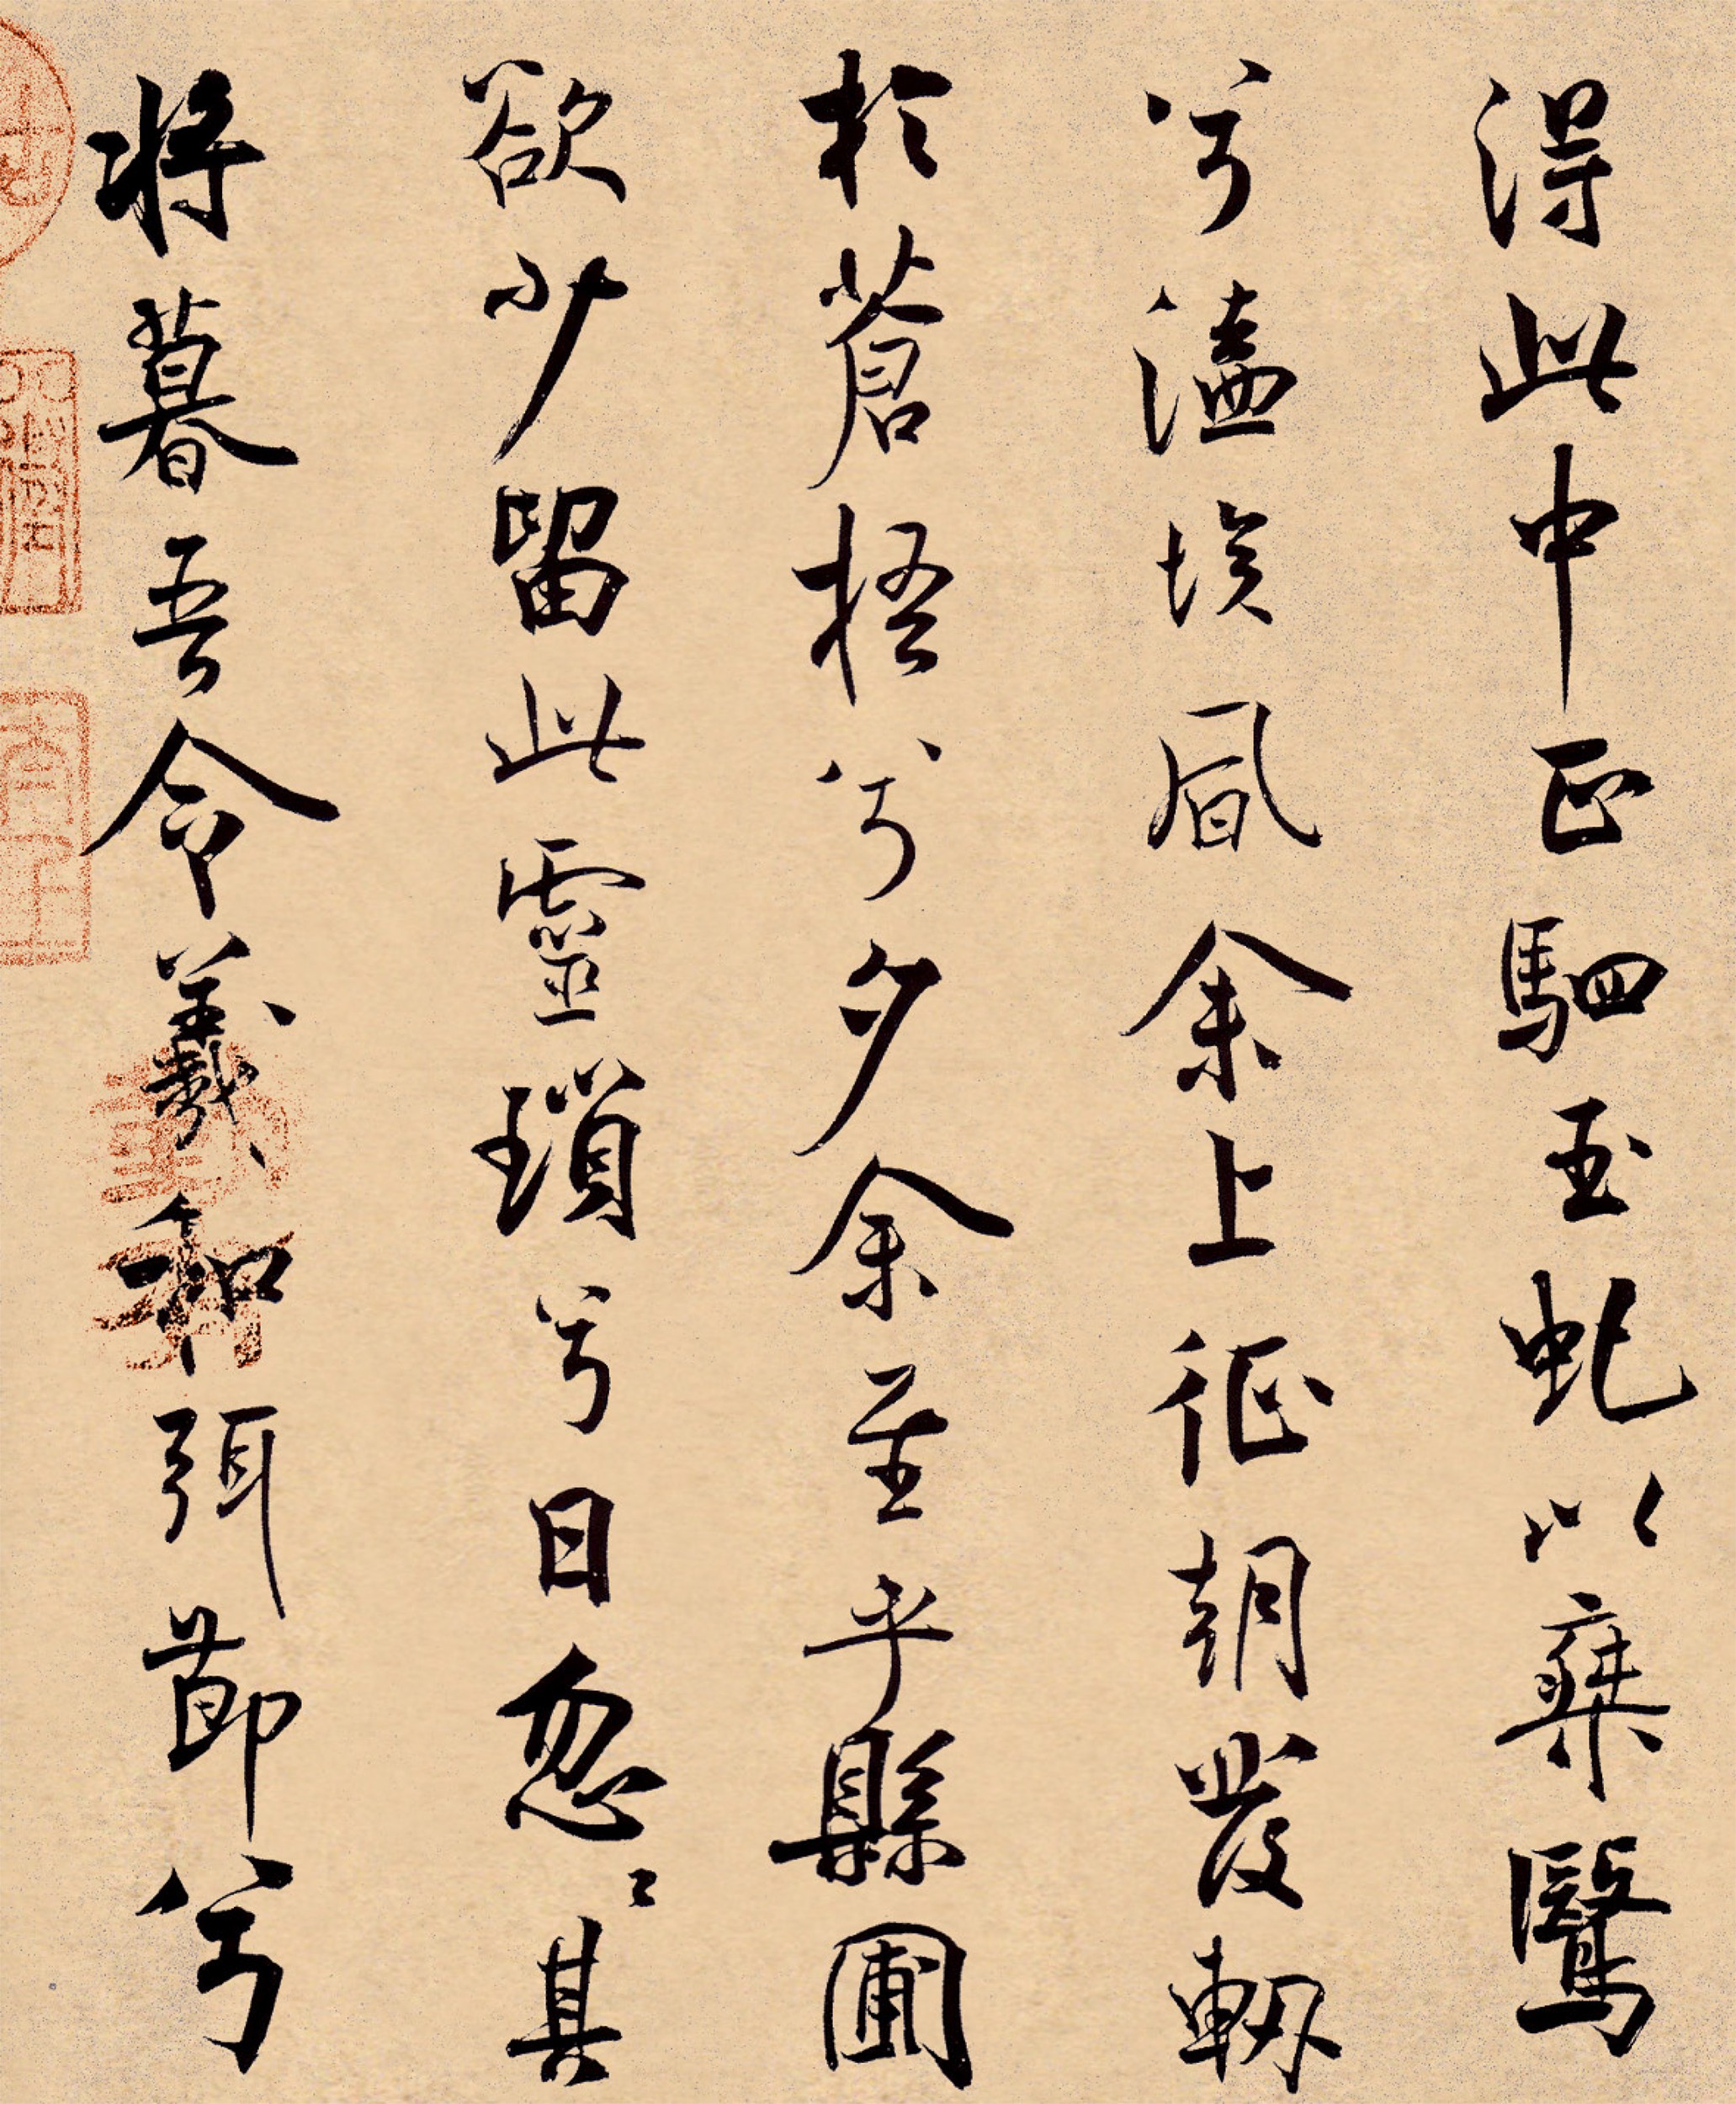 得此中正駟玉虬以椉鷖
兮溘埃風余上征朝發軔
於蒼梧兮夕余至乎縣圃
欲少留此靈瑣兮日忽〻其
將暮吾令羲和弭節兮